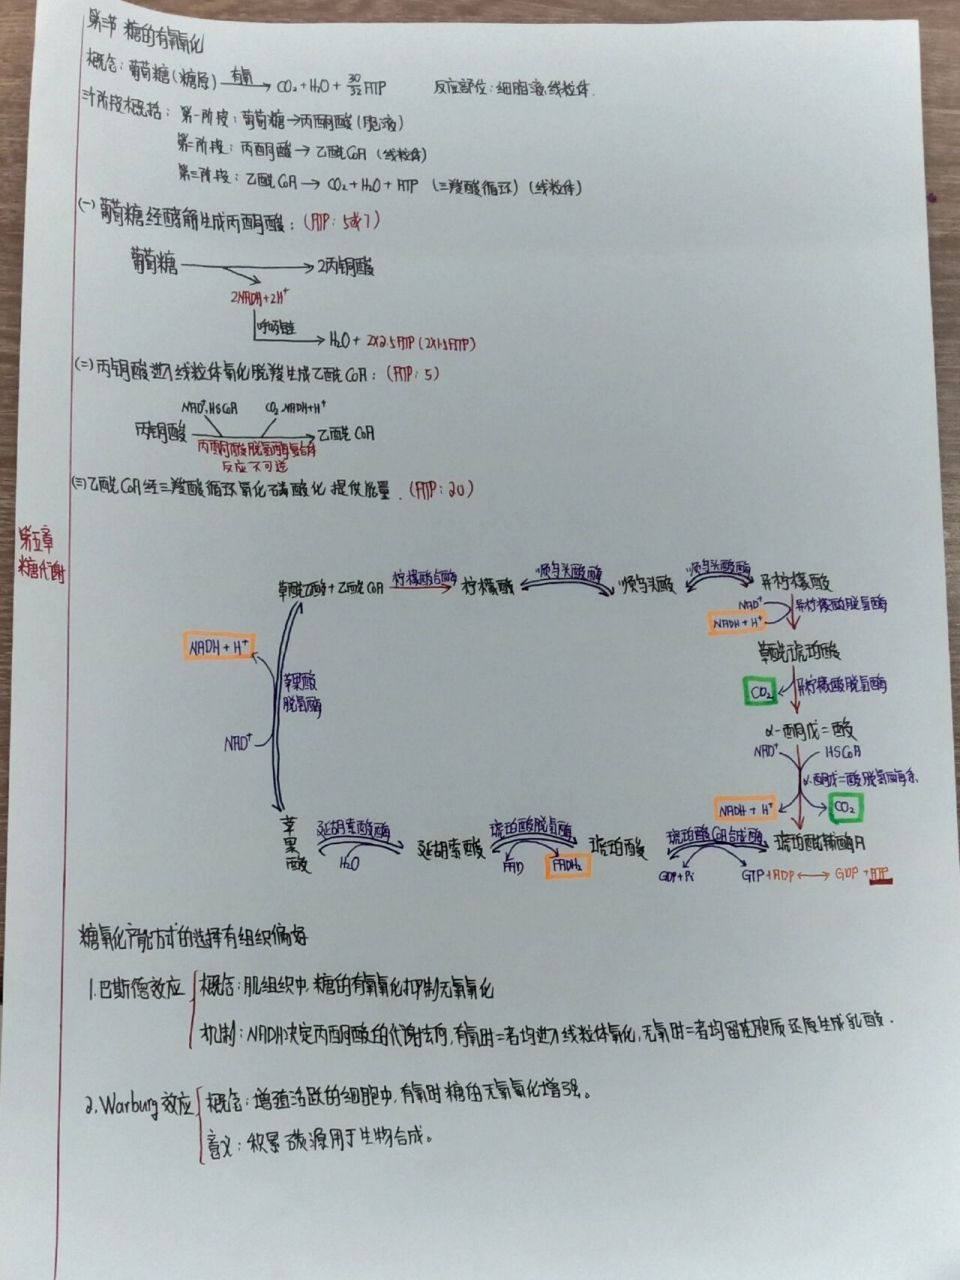 第三节 糖的有氧氧化
概念：葡萄糖（糖原） 有氧→ CO₂+H₂O+30/32ATP 反应部位：细胞液，线粒体.
三个阶段概括：第一阶段：葡萄糖→丙酮酸（胞液）
第二阶段：丙酮酸→乙酰CoA（线粒体）
第三阶段：乙酰CoA→CO₂+H₂O+ATP（三羧酸循环）（线粒体）
(一)葡萄糖经酵解生成丙酮酸：（ATP：5或7）
葡萄糖 → 2丙酮酸
2NADH+2H⁺
呼吸链
→H₂O+2×2.5ATP(2×1.5ATP)
(二)丙酮酸进入线粒体氧化脱羧生成乙酰CoA：（ATP：5）
NAD⁺,HSCoA CO₂ NADH+H⁺
丙酮酸 → 乙酰CoA
丙酮酸脱氢酶复合体
反应不可逆
(三)乙酰CoA经三羧酸循环氧化磷酸化提供能量.（ATP：20）
第五章
糖代谢
草酰乙酸+乙酰CoA 柠檬酸合酶 柠檬酸 顺乌头酸酶 顺乌头酸 顺乌头酸酶 异柠檬酸
NAD⁺ 异柠檬酸脱氢酶
NADH+H⁺
草酰琥珀酸
CO₂ 异柠檬酸脱氢酶
α-酮戊二酸
NAD⁺ HSCoA
α-酮戊二酸脱氢酶系
NADH+H⁺ CO₂
琥珀酰辅酶A
琥珀酰CoA合成酶
GDP+Pi GTP+ADP↔GDP+ATP
琥珀酸
琥珀酸脱氢酶
FAD FADH₂
延胡索酸
延胡索酸酶
H₂O
苹果酸
苹果酸
脱氢酶
NAD⁺
NADH+H⁺
糖氧化产能方式的选择有组织偏好
1.巴斯德效应 概念：肌组织中,糖的有氧氧化抑制无氧氧化
机制：NADH决定丙酮酸的代谢去向,有氧时二者均进入线粒体氧化,无氧时二者均留在胞质还原生成乳酸.
2.Warburg效应 概念：增殖活跃的细胞中,有氧时糖的无氧氧化增强。
意义：积累碳源用于生物合成。